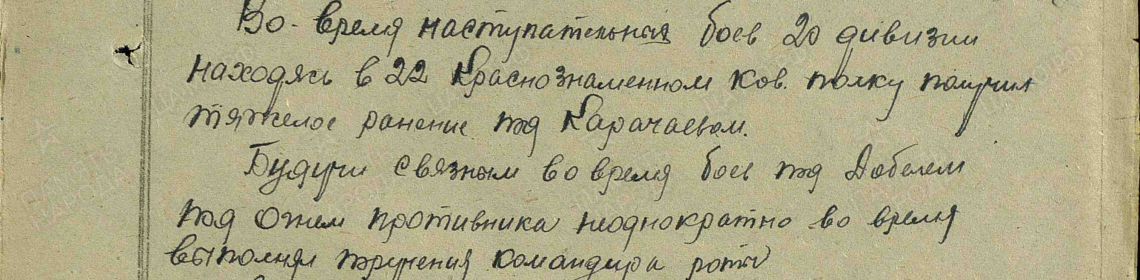 Во время наступательных боев 20 дивизии
находясь в 22 Краснознаменном кав. полку получил
тяжелое ранение под Карачаевом.
Будучи связным во время боев под Добелем
под огнем противника неоднократно во время
выполнял поручения командира роты